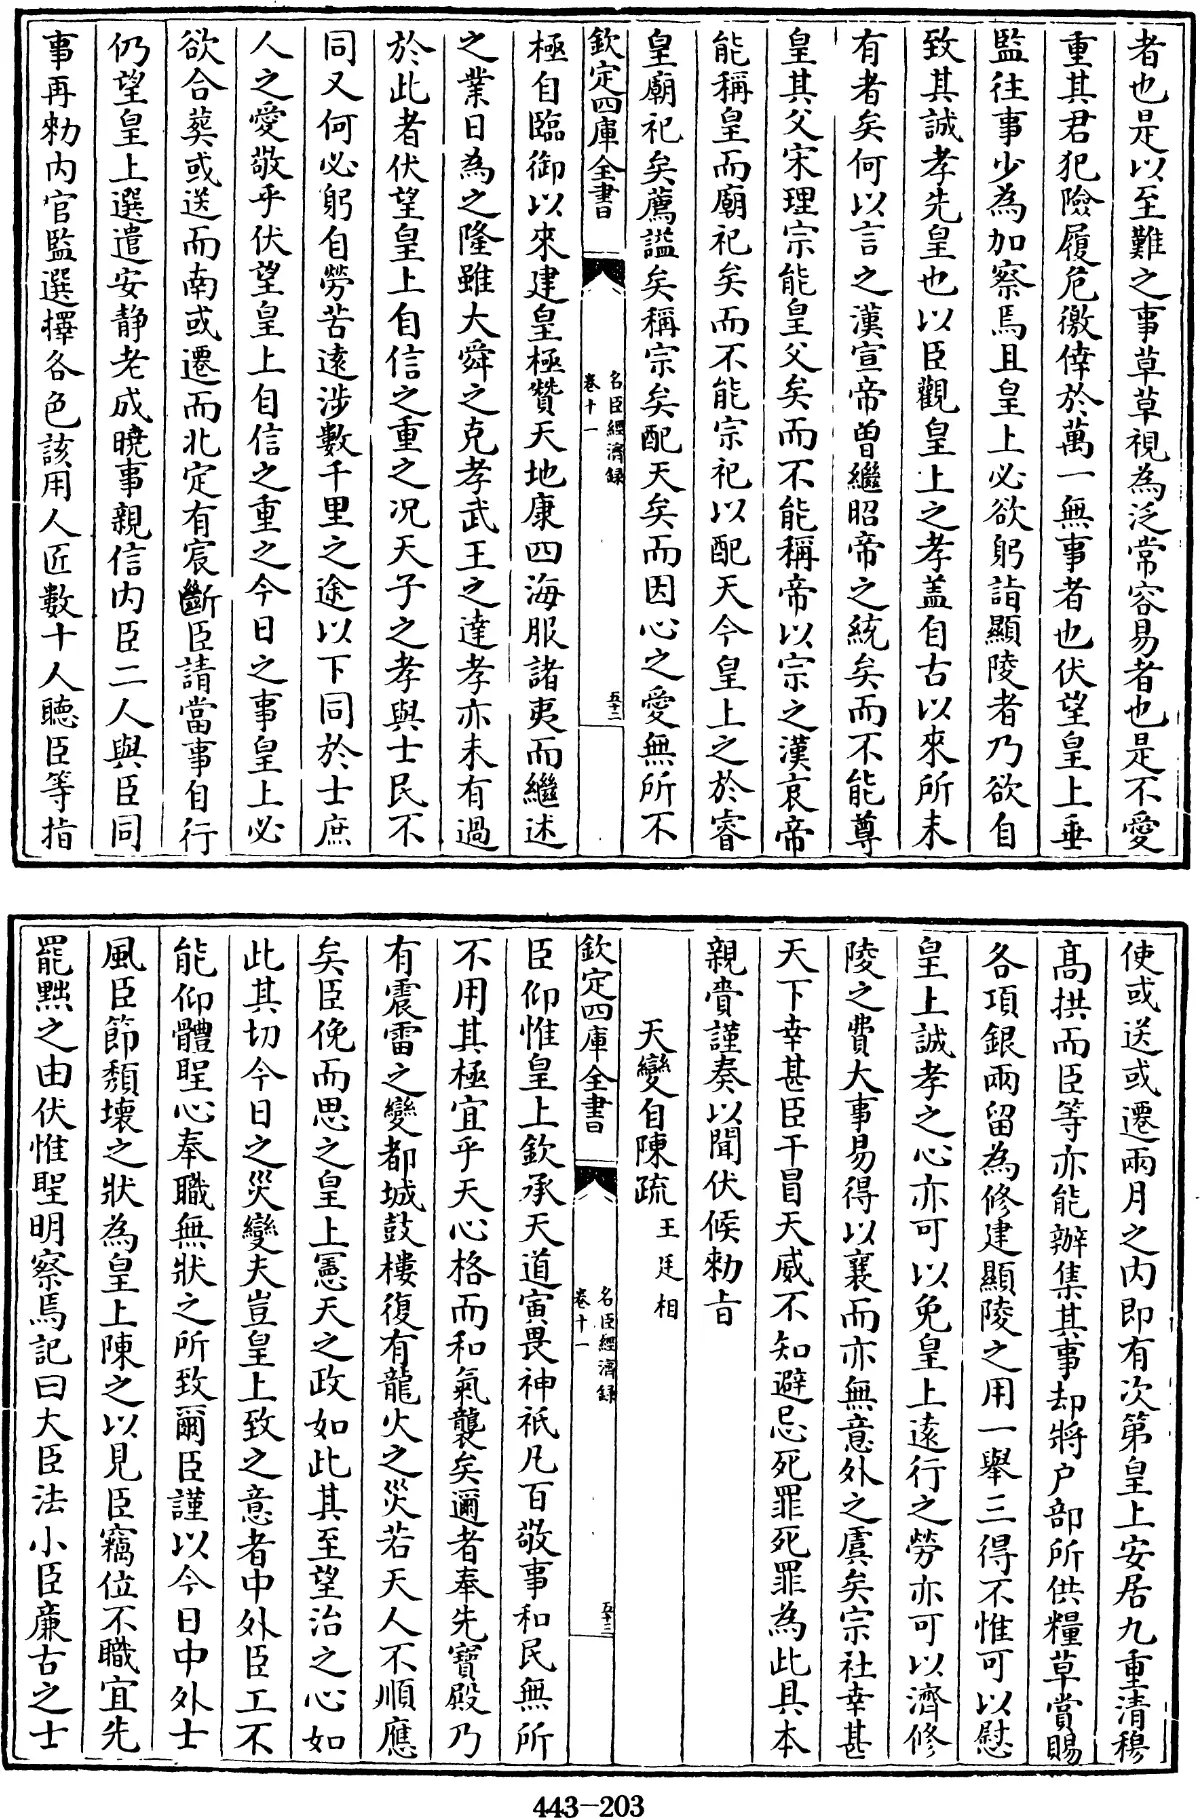 者也是以至難之事草草視為泛常容易者也是不愛
重其君犯險履危徼倖於萬一無事者也伏望皇上垂
監往事少為加察焉且皇上必欲躬詣顯陵者乃欲自
致其誠孝先皇也以臣觀皇上之孝盖自古以來所未
有者矣何以言之漢宣帝曽繼昭帝之統矣而不能尊
皇其父宋理宗能皇父矣而不能稱帝以宗之漢哀帝
能稱皇而廟祀矣而不能宗祀以配天今皇上之於睿
皇廟祀矣薦謚矣稱宗矣配天矣而因心之愛無所不
欽定四庫全書
名臣經濟録
卷十一
五十二
極自臨御以來建皇極贊天地康四海服諸夷而繼述
之業日為之隆雖大舜之克孝武王之達孝亦未有過
於此者伏望皇上自信之重之况天子之孝與士民不
同又何必躬自勞苦遠涉數千里之途以下同於士庶
人之愛敬乎伏望皇上自信之重之今日之事皇上必
欲合葬或送而南或遷而北定有宸斷臣請當事自行
仍望皇上選遣安静老成曉事親信内臣二人與臣同
事再勑内官監選擇各色該用人匠數十人聽臣等指
使或送或遷兩月之内即有次第皇上安居九重清穆
髙拱而臣等亦能辦集其事却將户部所供糧草賞賜
各項銀兩留為修建顯陵之用一舉三得不惟可以慰
皇上誠孝之心亦可以免皇上遠行之勞亦可以濟修
陵之費大事易得以襄而亦無意外之虞矣宗社幸甚
天下幸甚臣干冒天威不知避忌死罪死罪為此具本
親賫謹奏以聞伏候勑旨
天變自陳疏 王廷相
欽定四庫全書
名臣經濟録
卷十一
五十三
臣仰惟皇上欽承天道寅畏神祇凡百敬事和民無所
不用其極宜乎天心格而和氣襲矣邇者奉先寶殿乃
有震雷之變都城鼓樓復有龍火之災若天人不順應
矣臣俛而思之皇上憲天之政如此其至望治之心如
此其切今日之災變夫豈皇上致之意者中外臣工不
能仰體聖心奉職無狀之所致爾臣謹以今日中外士
風臣節頽壞之狀為皇上陳之以見臣竊位不職宜先
罷黜之由伏惟聖明察焉記曰大臣法小臣廉古之士
443-203